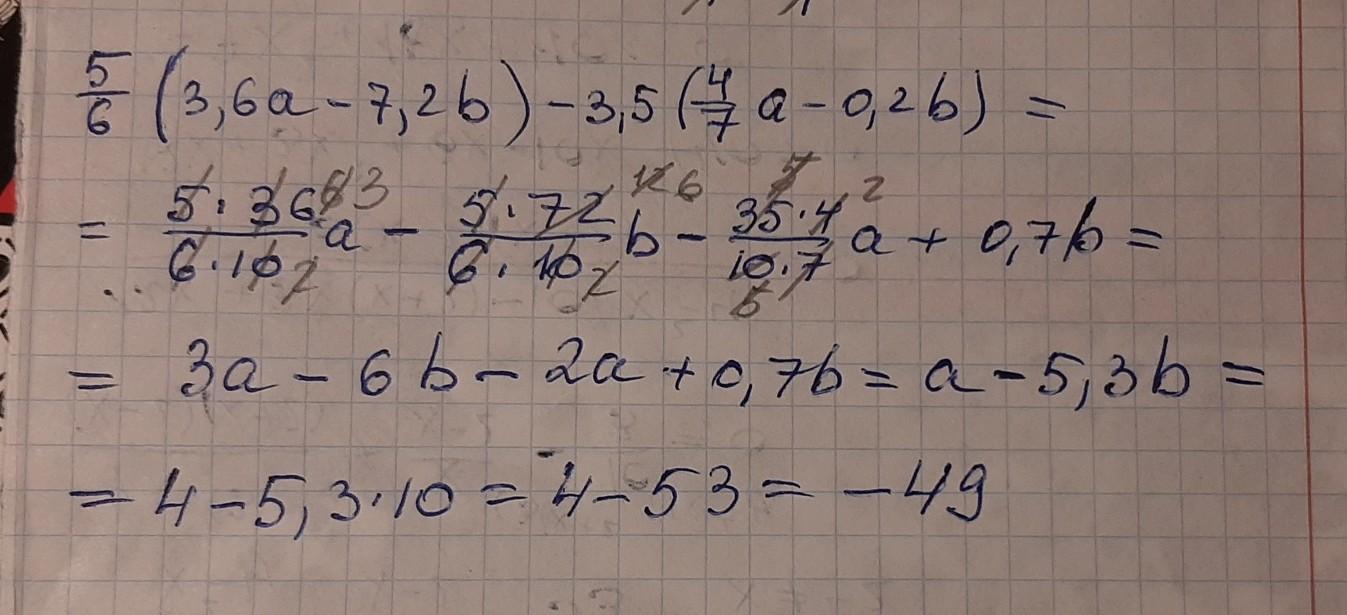 5/6 (3,6a - 7,2b) - 3,5 (4/7 a - 0,2b) =
= 5·36/6·10 a - 5·72/6·10 b - 35·4/10·7 a + 0,7b =
= 3a - 6b - 2a + 0,7b = a - 5,3b =
= 4 - 5,3·10 = 4 - 53 = -49